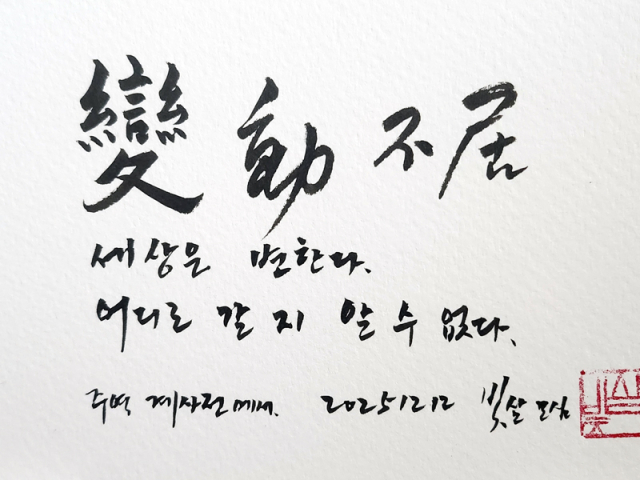 變動不居
세상은 변한다.
어디로 갈지 알 수 없다.
주역 계사전에서. 20251212 빛살 모심